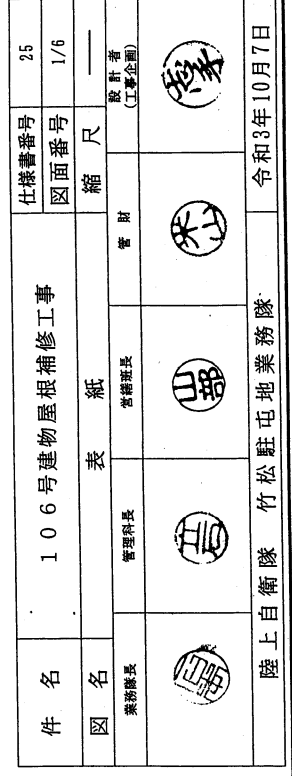 件名 106号建物屋根補修工事 仕様書番号 25
図名 表紙 図面番号 1/6
縮尺 ―
業務隊長 管理科長 営繕班長 管財 設計者
(工事企画)
山部
陸上自衛隊 竹松駐屯地業務隊 令和3年10月7日